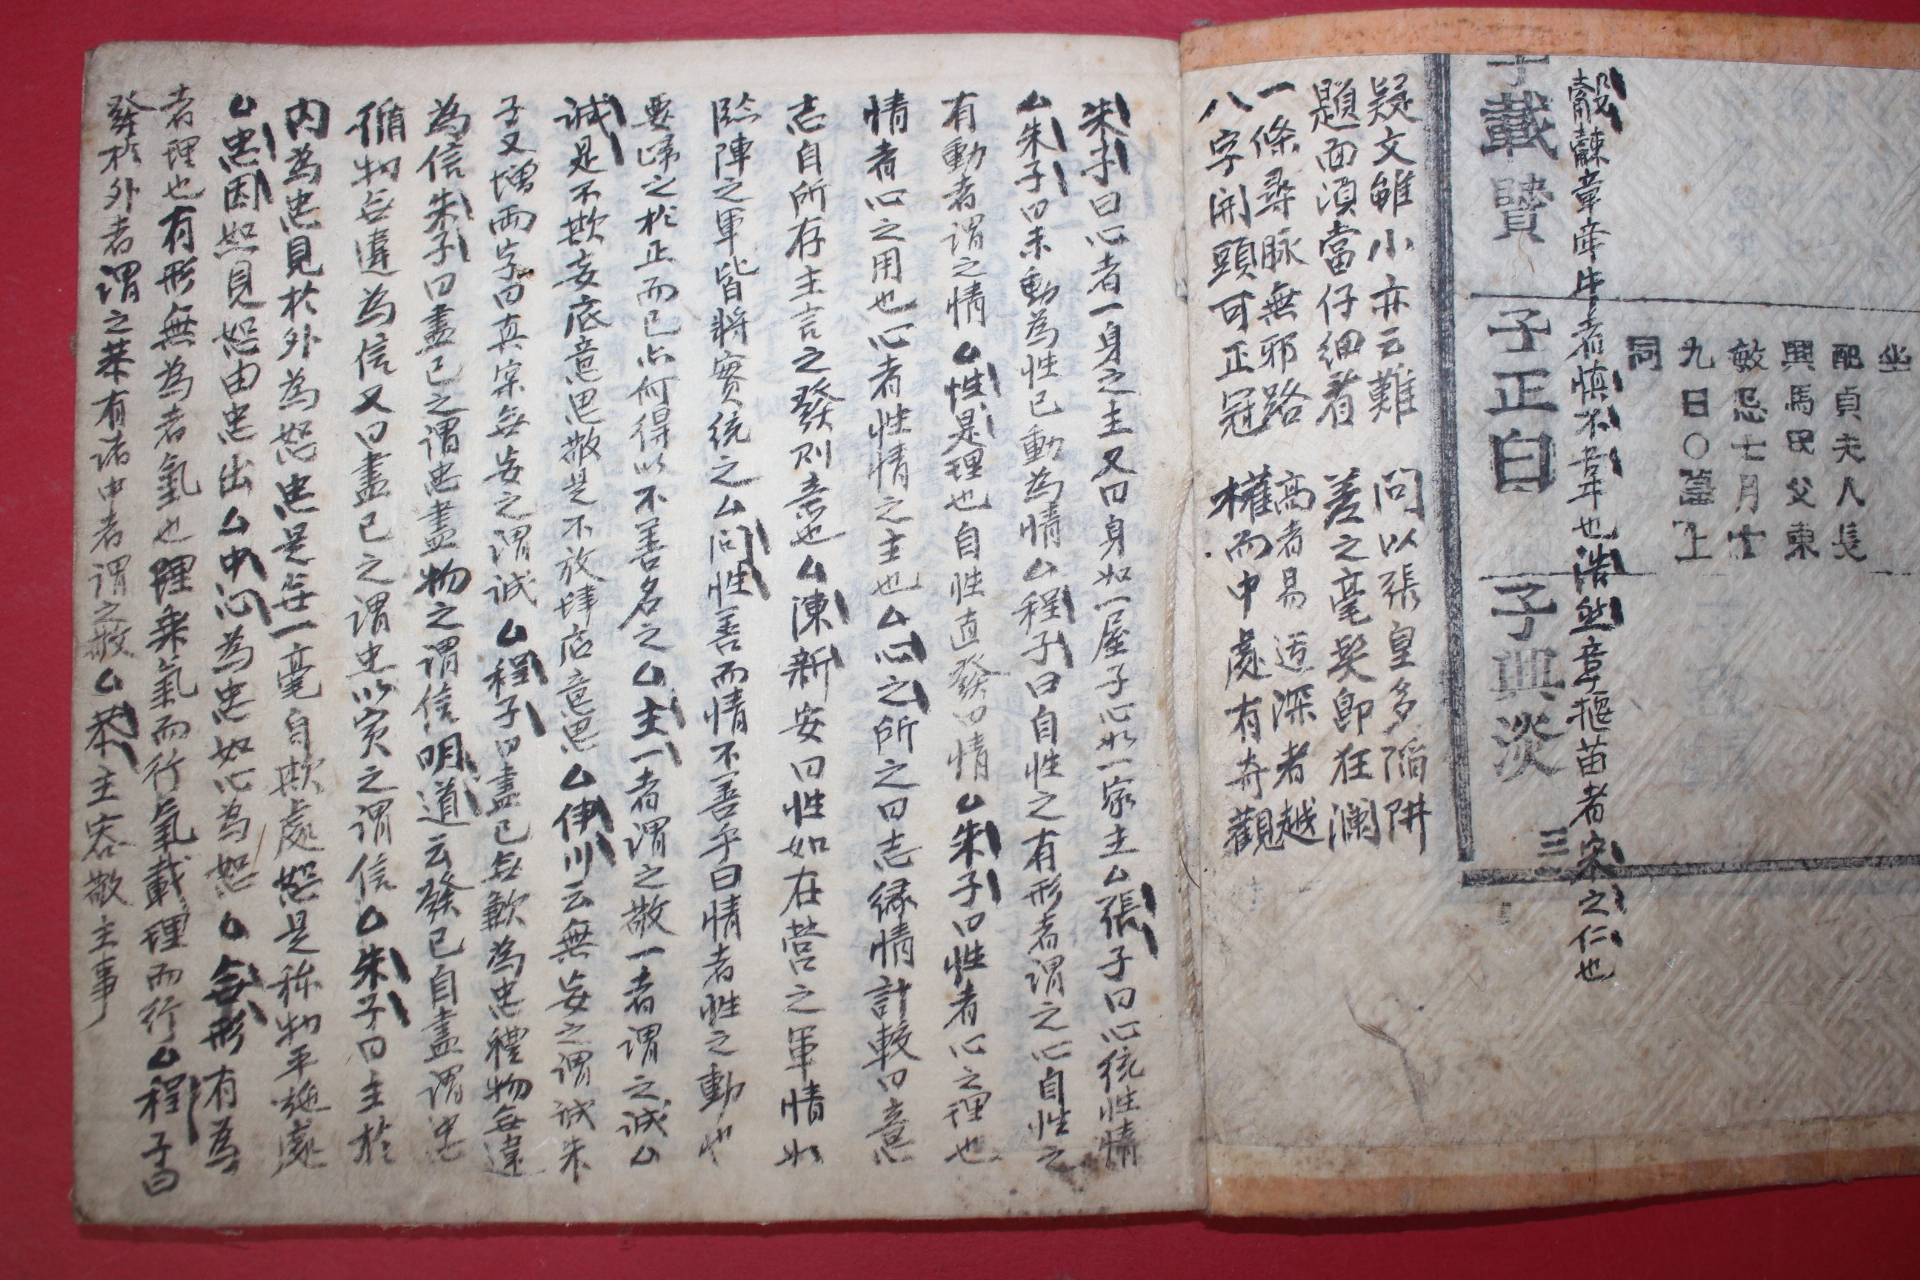 坐
配貞夫人長
興馬氏父東
敏忌士月
九日○墓上
同
觳觫章牽牛者愼不害牛也浩然章揠苗者宋之仁也
子載贊 子正白 子典淡 三
疑文雖小亦云難 問以張皇多陷阱
題面須當仔細着 差之毫髮卽狂瀾
一條尋脉無邪路 高者易 深者越
八字開頭可正冠 權而中處有奇觀
朱子曰心者一身之主又曰身如一屋子心如一家主厶張子曰心統性情
厶朱子曰未動為性已動為情厶程子曰自性之有形者謂之心自性之
有動者謂之情厶性是理也自性直發曰情厶朱子曰性者心之理也
情者心之用也心者性情之主也厶心之所之曰志緣情計較曰意
志自所存主言之發則意也厶陳新安曰性如在營之軍情如
臨陣之軍皆將實統之厶問性善而情不善乎曰情者性之動也
要歸之於正而已亦何得以不善名之厶主一者謂之敬一者謂之誠厶
誠是不欺妄底意思敬是不放肆底意思厶伊川云無妄之謂誠朱
子又增兩字曰真實無妄之謂誠厶程子曰盡已無歉為忠體物無違
為信朱子曰盡已之謂忠盡物之謂信明道云發已自盡謂忠
循物無違為信又曰盡已之謂忠以實之謂信厶朱子曰主於
內為忠見於外為恕忠是無一毫自欺處恕是称物平施處
厶忠因恕見恕由忠出厶中心為忠如心為恕厶無形有為
者理也有形無為者氣也理乘氣而行氣載理而行厶程子曰
發於外者謂之恭有諸中者謂之敬厶恭主容敬主事